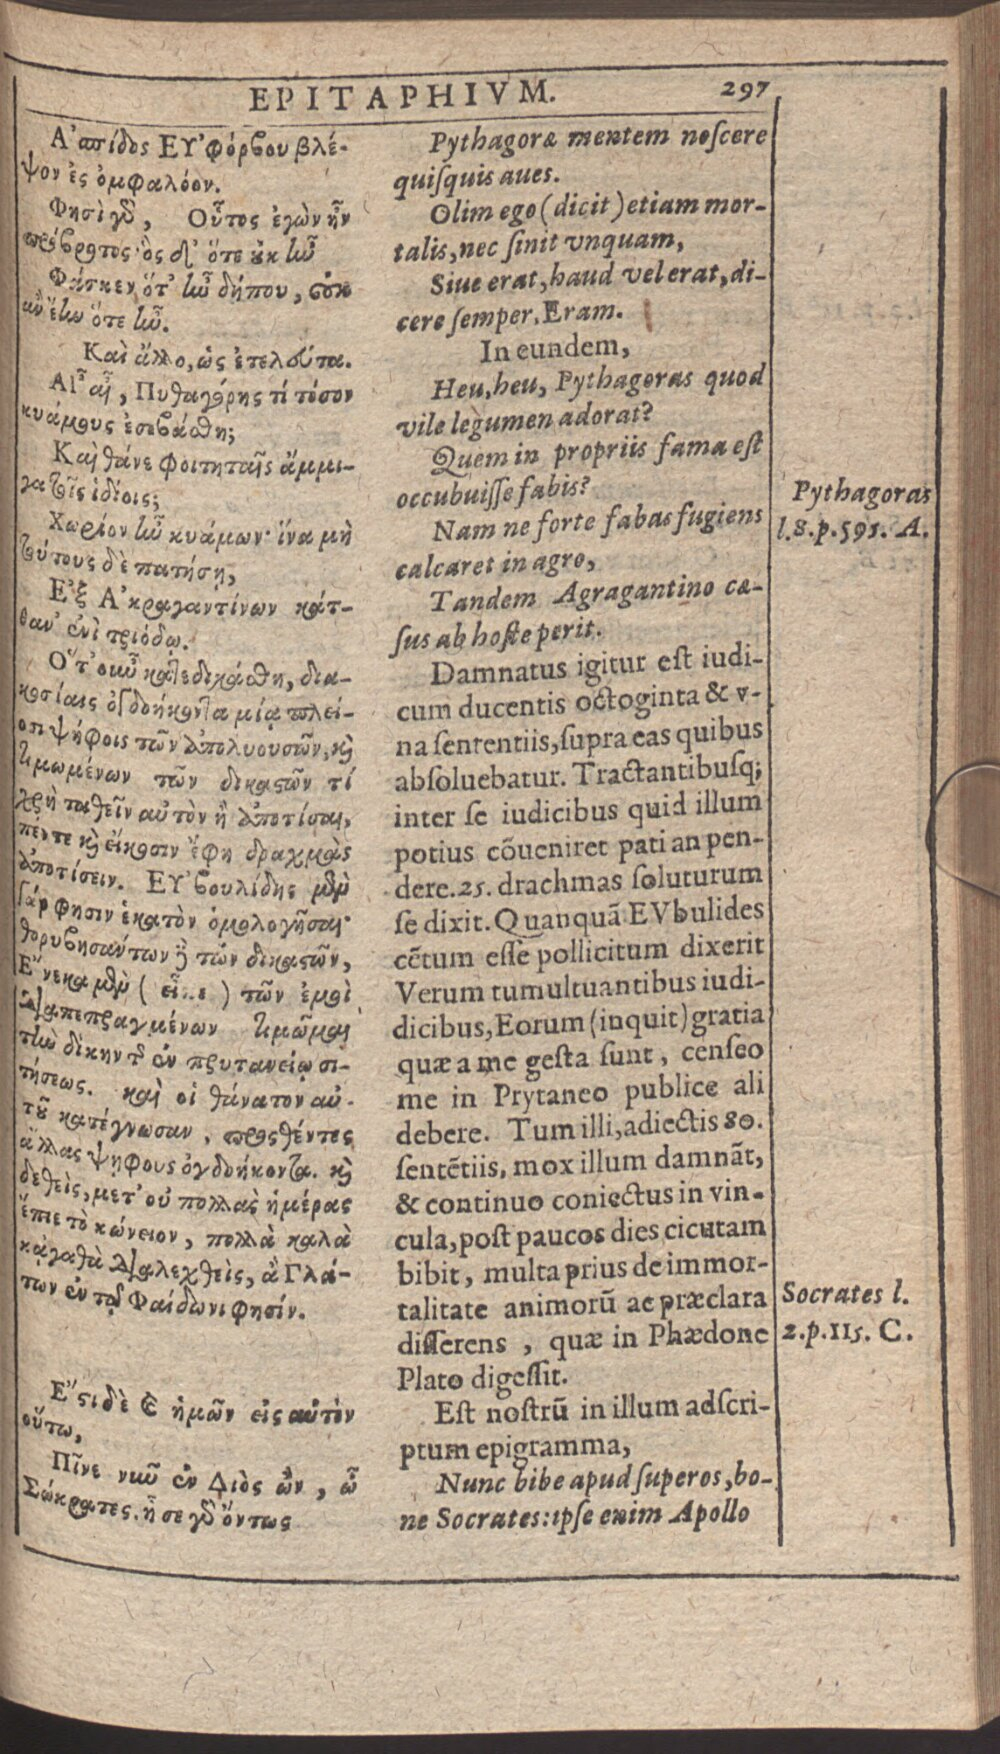 EPITAPHIVM. 297
Α'ασίδος ΕΥ'φόρβου βλέ-
ψον ἐς ὀμφαλόον.
Φησὶ γδ, Οὗτος ἐγὼν ἦν
πρόβροτος· ὃς δ' ὅτε οὐκ ἦν
Φάσκεν ὅτ' ἦν δήπου, σῶος
ἂν ἔην ὅτε ἦν.
Καὶ ἄλλο, ὡς ἐτελεύτα.
Αἲ αἲ, Πυθαγόρης τί τόσον
κυάμους ἐσεβάσθη;
Καὶ θάνε φοιτηταῖς ἄμμι-
γα τοῖς ἰδίοις;
Χωρίον ἦν κυάμων· ἵνα μὴ
τούτους δὲ πατήσῃ,
Ε'ξ Α'κραγαντίνων κάτ-
θαν' ἐνὶ τριόδῳ.
Ο῞τ' οὖν κατεδικάσθη, δια-
κοσίαις ὀγδοήκοντα μίᾳ πλεί-
οσι ψήφοις τῶν ἀπολυουσῶν, καὶ
τιμωμένων τῶν δικαστῶν τί
χρὴ παθεῖν αὐτὸν ἢ ἀποτίσαι,
πέντε καὶ εἴκοσιν ἔφη δραχμὰς
ἀποτίσειν. ΕΥ'βουλίδης μὲν
γάρ φησιν ἑκατὸν ὁμολογῆσαι·
θορυβησάντων δὲ τῶν δικαστῶν,
Ε῞νεκα μὲν (εἶπε) τῶν ἐμοὶ
διαπεπραγμένων τιμῶμαι
τὴν δίκην τῆς ἐν πρυτανείῳ σι-
τήσεως. καὶ οἱ θάνατον αὐ-
τοῦ κατέγνωσαν, προσθέντες
ἄλλας ψήφους ὀγδοήκοντα. καὶ
δεθεὶς, μετ' οὐ πολλὰς ἡμέρας
ἔπιε τὸ κώνειον, πολλὰ καλὰ
κἀγαθὰ διαλεχθεὶς, ἃ Πλά-
των ἐν τῷ Φαίδωνι φησίν.
Ε῎στι δὲ καὶ ἡμῶν εἰς αὐτὸν
οὕτω,
Πῖνε νῦν ἐν Διὸς ὢν, ὦ
Σώκρατες. ἦ σε γδ ὄντως
Pythagoræ mentem noſcere
quiſquis aues.
Olim ego (dicit) etiam mor-
talis, nec ſinit vnquam,
Siue erat, haud vel erat, di-
cere ſemper, Eram.
In eundem,
Heu, heu, Pythagoras quod
vile legumen adorat?
Quem in propriis fama eſt
occubuiſſe fabis?
Nam ne forte fabas fugiens
calcaret in agro,
Tandem Agragantino cæ-
ſus ab hoſte perit.
Damnatus igitur eſt iudi-
cum ducentis octoginta & v-
na ſententiis, ſupra eas quibus
abſoluebatur. Tractantibuſq;
inter ſe iudicibus quid illum
potius cõueniret pati an pen-
dere. 25. drachmas ſoluturum
ſe dixit. Quanquã EVbulides
cẽtum eſſe pollicitum dixerit
Verum tumultuantibus iudi-
dicibus, Eorum (inquit) gratia
quæ a me geſta ſunt, cenſeo
me in Prytaneo publice ali
debere. Tum illi, adiectis 80.
ſentẽtiis, mox illum damnãt,
& continuo coniectus in vin-
cula, poſt paucos dies cicutam
bibit, multa prius de immor-
talitate animorũ ac præclara
diſſerens, quæ in Phædone
Plato digeſſit.
Eſt noſtrũ in illum adſcri-
ptum epigramma,
Nunc bibe apud ſuperos, bo-
ne Socrates: ipſe enim Apollo
Pythagoras
l. 8. p. 591. A.
Socrates l.
2. p. 115. C.